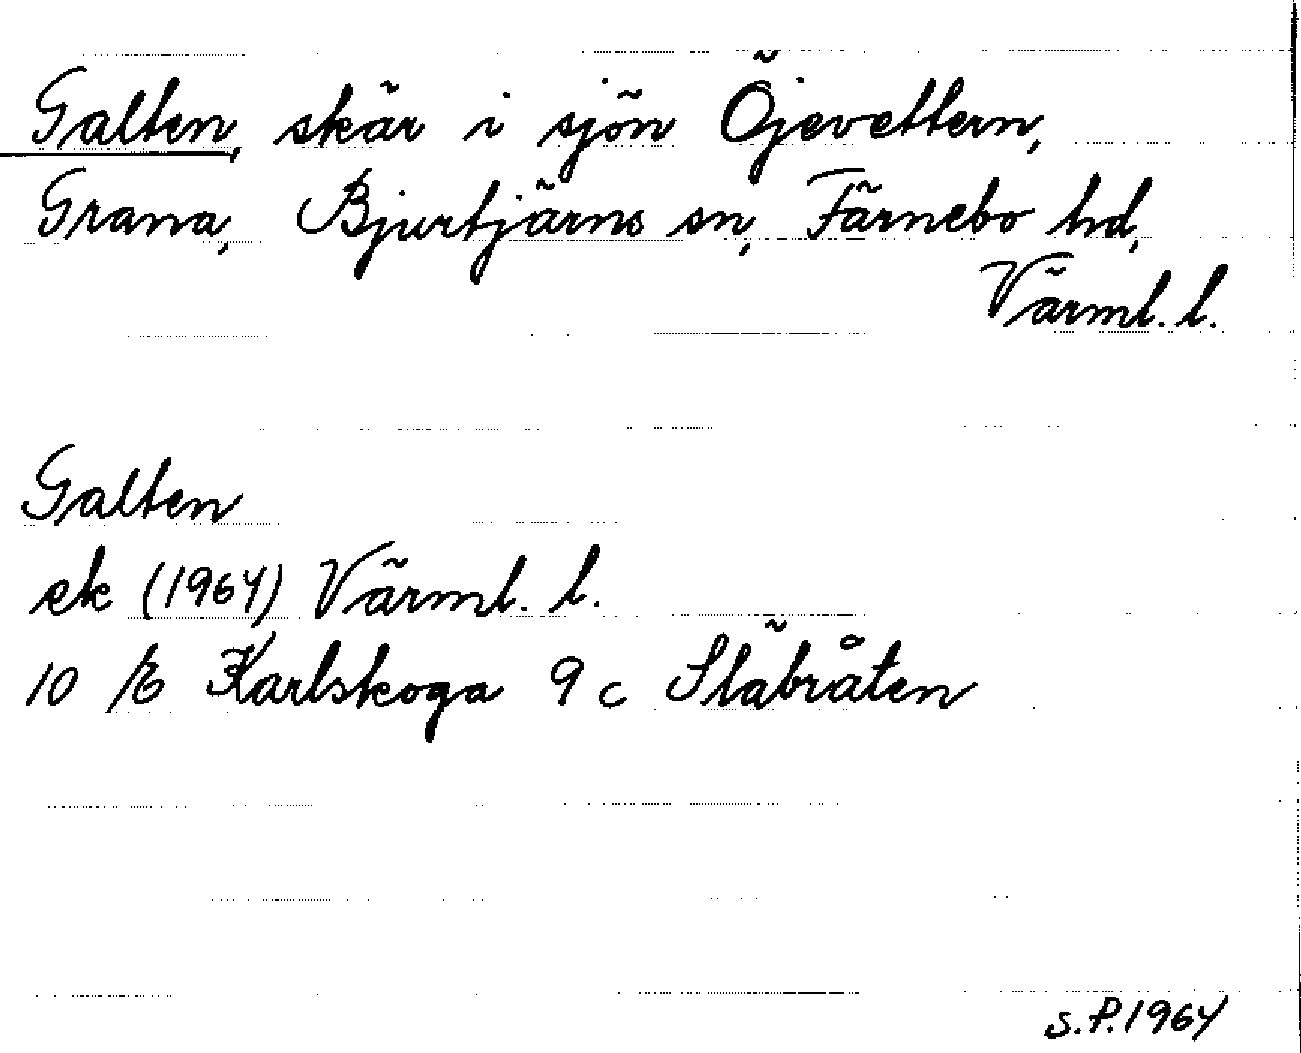 Galten, skär i sjön Öjevettern,
Grana, Bjurtjärns sn, Färnebo hd,
Värml. l.
Galten
ek (1964) Värml. l.
10 E Karlskoga 9 c Släbråten
S.P.1964